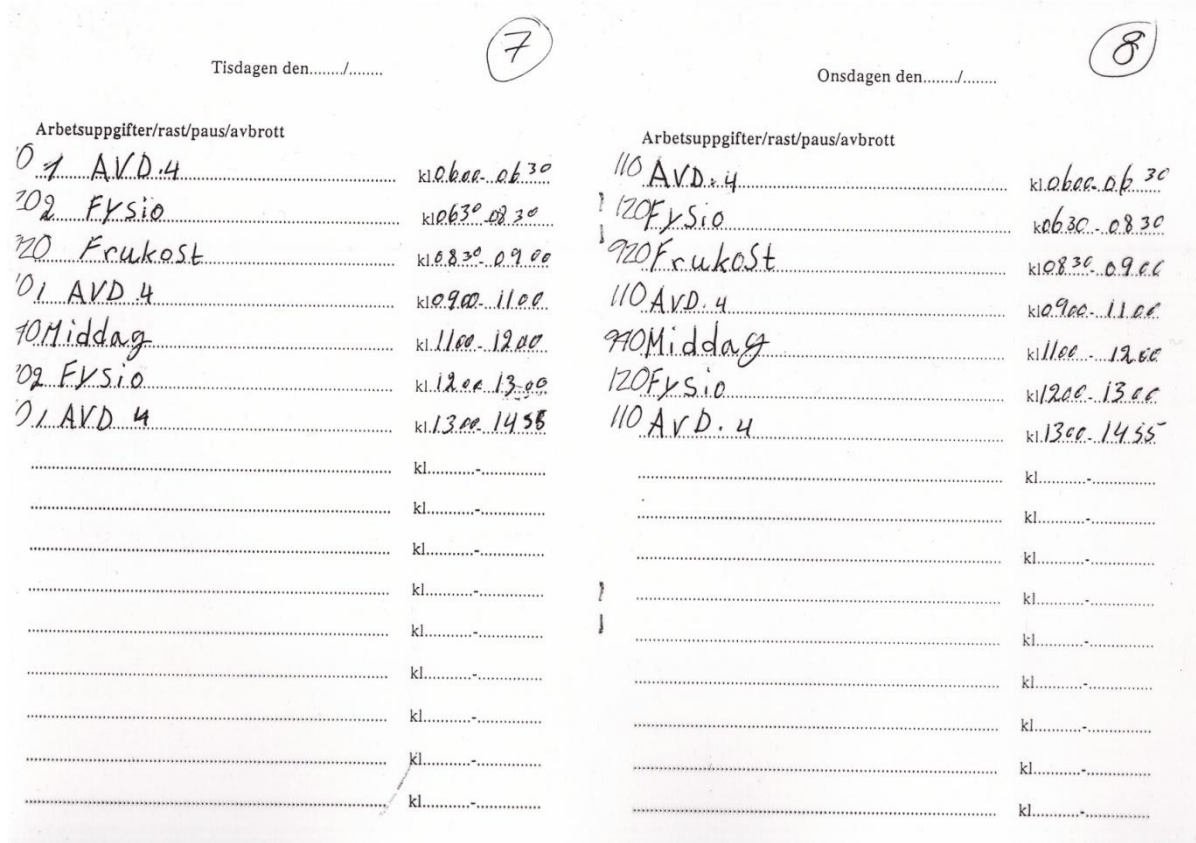 7
Tisdagen den......../........
Arbetsuppgifter/rast/paus/avbrott
01 AVD.4 kl.0600-0630
02 Fysio kl.0630-0830
20 Frukost kl.0830-0900
01 AVD.4 kl.0900-1100
10 Middag kl.1100-1200
02 Fysio kl.1200-1300
01 AVD 4 kl.1300-1455
kl...........-..............
kl...........-..............
kl...........-..............
kl...........-..............
kl...........-..............
kl...........-..............
kl...........-..............
kl...........-..............
kl...........-..............
8
Onsdagen den......../........
Arbetsuppgifter/rast/paus/avbrott
110 AVD.4 kl.0600-0630
120 Fysio kl.0630-0830
920 Frukost kl.0830-0900
110 AVD.4 kl.0900-1100
910 Middag kl.1100-1200
120 Fysio kl.1200-1300
110 AVD.4 kl.1300-1455
kl...........-..............
kl...........-..............
kl...........-..............
kl...........-..............
kl...........-..............
kl...........-..............
kl...........-..............
kl...........-..............
kl...........-..............